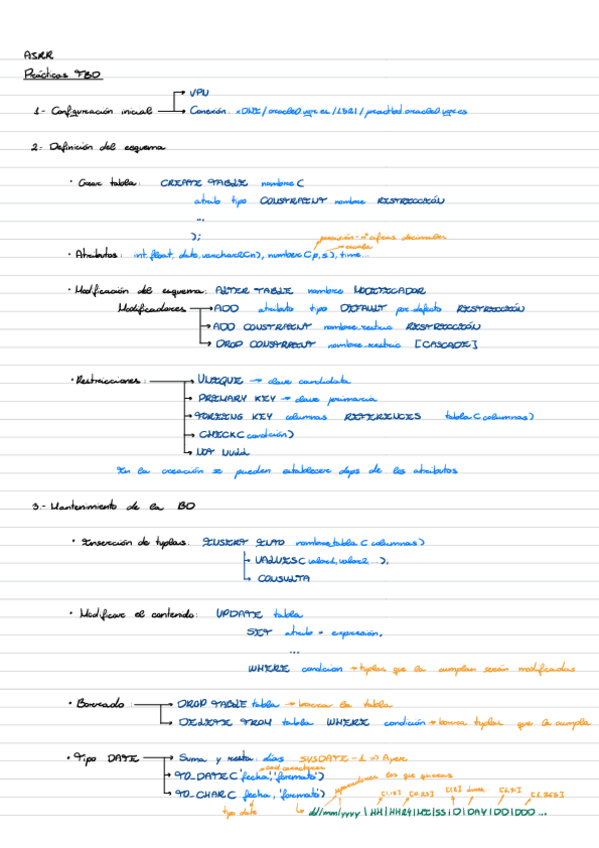 ASRR
Prácticas FBD
VPU
1- Configuración inicial
Conexión: xDNI/oracle0.ugr.es/1521/practbd.oracle0.ugr.es
2- Definición del esquema
· Crear tabla: CREATE TABLE nombre(
atributo tipo CONSTRAINT nombre RESTRICCIÓN
...
);
precisión - nº cifras decimales
escala
· Atributos: int, float, date, varchar2(n), number(p,s), time...
· Modificación del esquema: ALTER TABLE nombre MODIFICADOR
Modificadores ADD atributo tipo DEFAULT por defecto RESTRICCIÓN
ADD CONSTRAINT nombre.restric RESTRICCIÓN
DROP CONSTRAINT nombre.restric [CASCADE]
· Restricciones: UNIQUE → clave candidata
PRIMARY KEY → clave primaria
FOREING KEY columnas REFERENCES tabla(columnas)
CHECK(condición)
NOT NULL
En la creación se pueden establecer dsps de los atributos
3.- Mantenimiento de la BD
· Inserción de tuplas: INSERT INTO nombretabla(columnas)
VALUES(valor1, valor2, ..);
CONSULTA
· Modificar el contenido: UPDATE tabla
SET atributo = expresión,
...
WHERE condicion → tuplas que la cumplan serán modificadas
· Borrado: DROP TABLE tabla → borra la tabla
DELETE FROM tabla WHERE condición → borra tuplas que la cumpla
· Tipo DATE Suma y resta: días SYSDATE - 1 => Ayer
cad caracteres
TO_DATE('fecha','formato') separadores los que quieras
TO_CHAR(fecha, 'formato')
tipo date
dd/mm/yyyy | HH | HH24 | MI | SS | D | DAY | DD | DDD ...